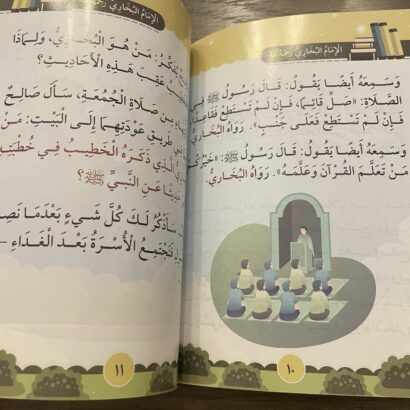 الإمام البخاري رحمه الله
وَسَمِعَهُ أَيْضًا يَقُولُ: قَالَ رَسُولُ ﷺ فِي
الصَّلَاةِ: «صَلِّ قَائِمًا، فَإِنْ لَمْ تَسْتَطِعْ فَقَاعِدًا،
فَإِنْ لَمْ تَسْتَطِعْ فَعَلَى جَنْبٍ». رَوَاهُ الْبُخَارِيُّ.
وَسَمِعَهُ أَيْضًا يَقُولُ: قَالَ رَسُولُ ﷺ: «خَيْرُكُمْ
مَنْ تَعَلَّمَ الْقُرْآنَ وَعَلَّمَهُ». رَوَاهُ الْبُخَارِيُّ.
١٠
الإمام البخاري رحمه الله
يُفَكِّرُ: مَنْ هُوَ الْبُخَارِيُّ، وَلِمَاذَا
عَقِبَ هَذِهِ الْأَحَادِيثِ؟
مِنْ صَلَاةِ الْجُمُعَةِ، سَأَلَ صَالِحٌ
طَرِيقِ عَوْدَتِهِمَا إِلَى الْبَيْتِ: مَنْ
الَّذِي ذَكَرَهُ الْخَطِيبُ فِي خُطْبَتِهِ
عَنِ النَّبِيِّ ﷺ؟
سَأَذْكُرُ لَكَ كُلَّ شَيْءٍ بَعْدَمَا نَصِلُ
تَجْتَمِعُ الْأُسْرَةُ بَعْدَ الْغَدَاءِ –
١١